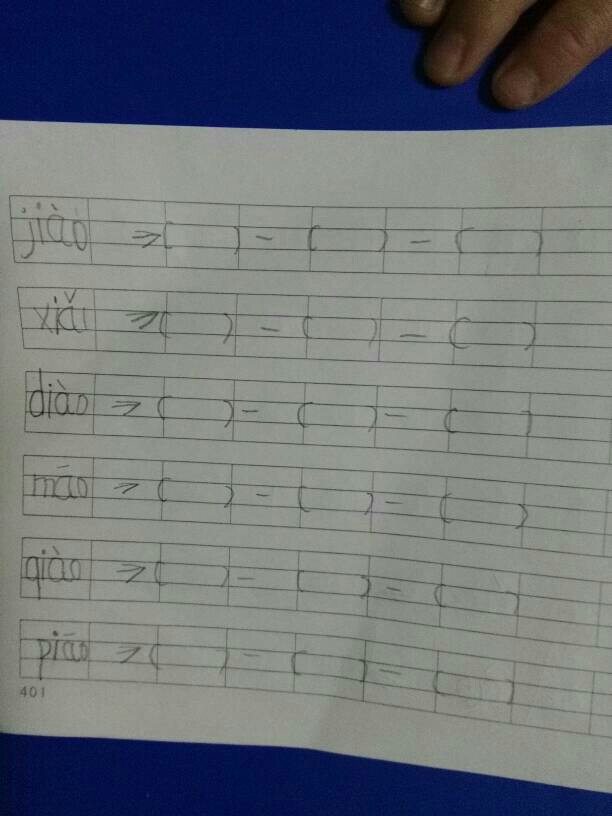 jiào ⇒ ( ) - ( ) - ( )
xiǎ ⇒ ( ) - ( ) - ( )
diào ⇒ ( ) - ( ) - ( )
māo ⇒ ( ) - ( ) - ( )
qiào ⇒ ( ) - ( ) - ( )
piāo ⇒ ( ) - ( ) - ( )
401